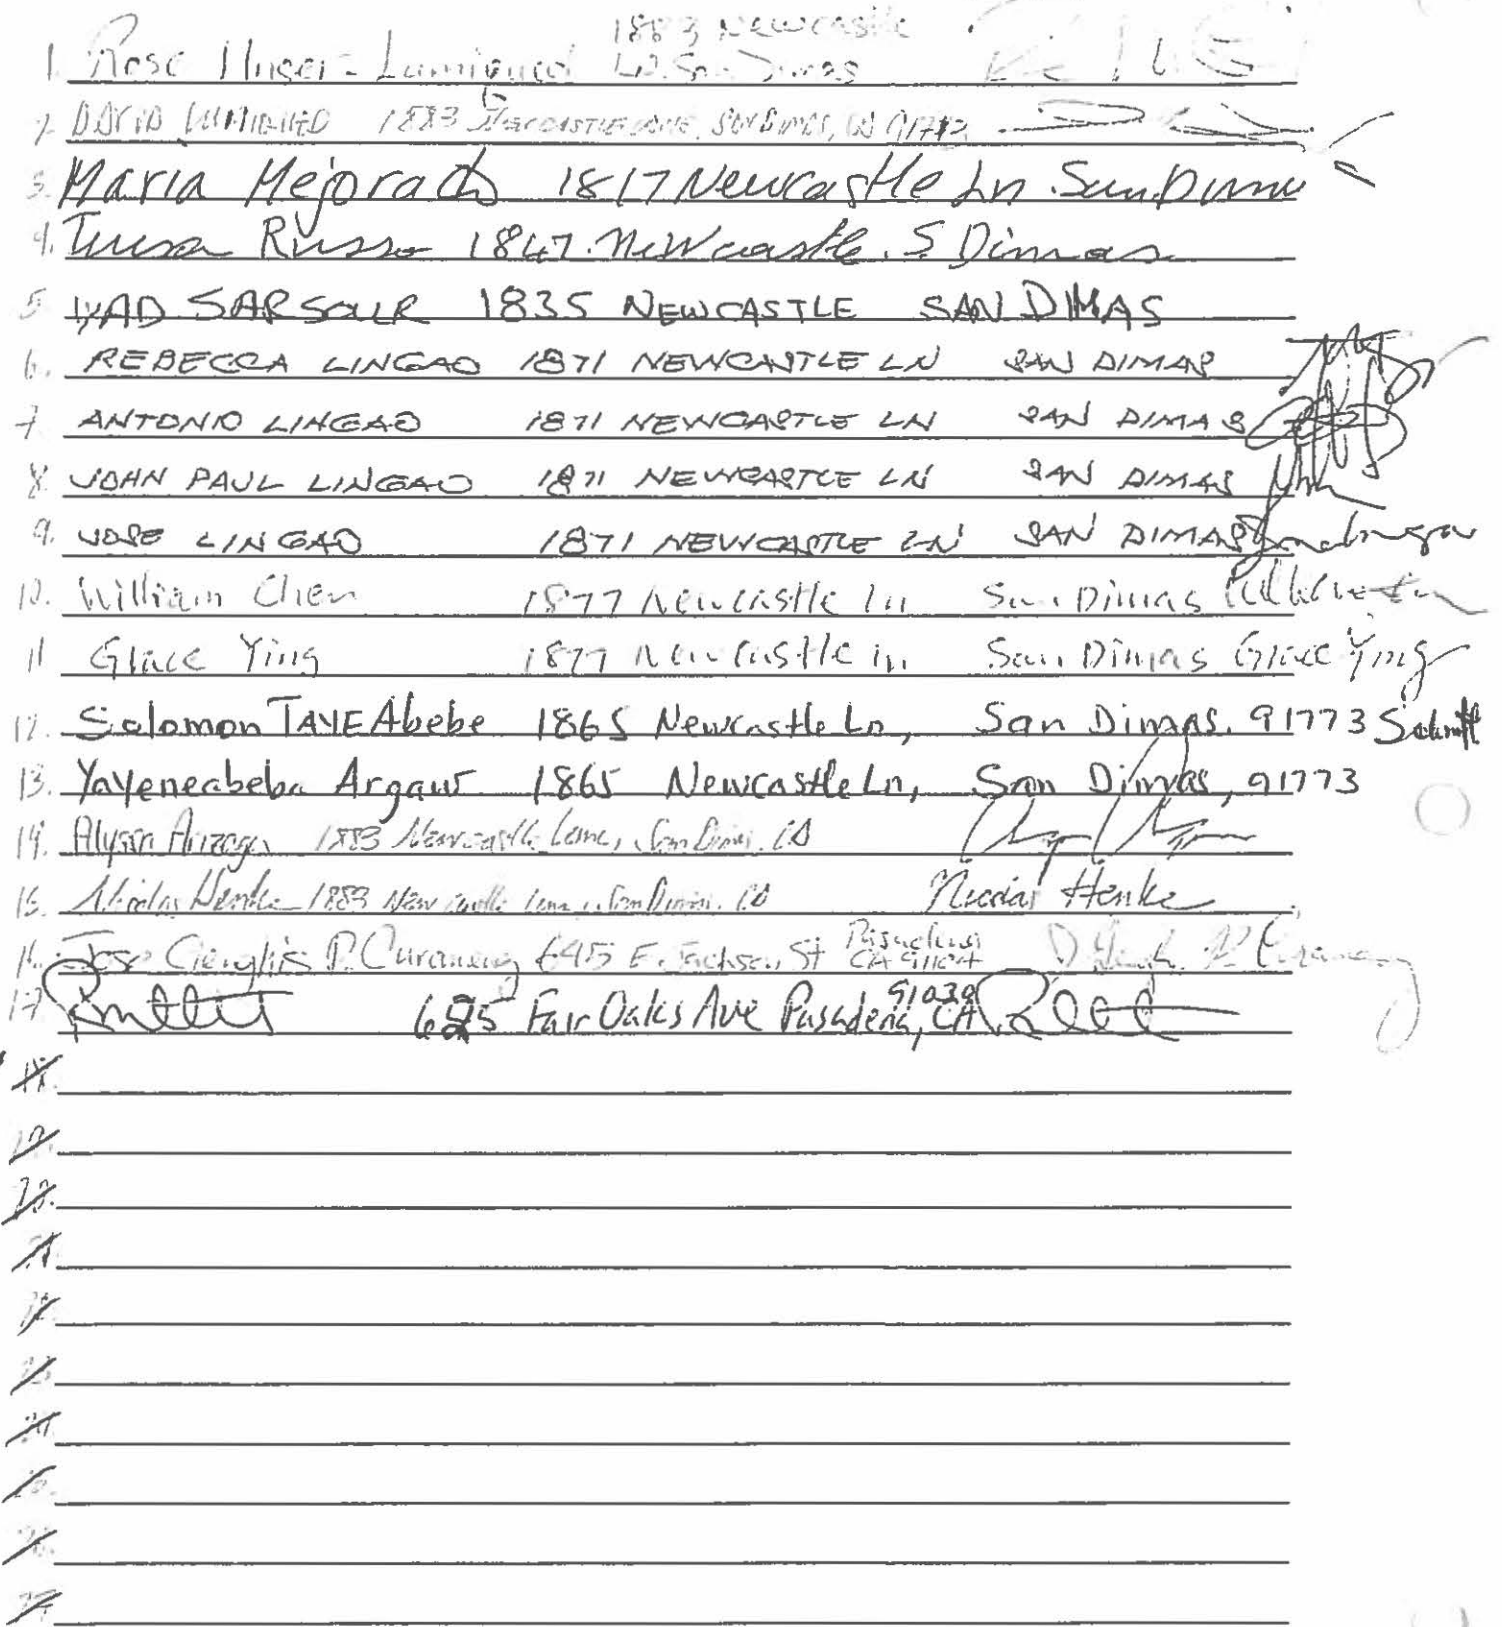 1883 Newcastle
1. Rose Ln. San Dimas
2. DAVID 1883 NEWCASTLE LANE, SAN DIMAS, CA
3. Maria Mejorado 1817 Newcastle Ln. San Dimas
4. Teresa Russo 1847. Newcastle. S Dimas
5. IYAD SARSOUR 1835 NEWCASTLE SAN DIMAS
6. REBECCA LINGAO 1871 NEWCASTLE LN SAN DIMAS
7. ANTONIO LINGAO 1871 NEWCASTLE LN SAN DIMAS
8. JOHN PAUL LINGAO 1871 NEWCASTLE LN SAN DIMAS
9. JOSE LINGAO 1871 NEWCASTLE LN SAN DIMAS
10. William Chen 1877 Newcastle Ln San Dimas
11 Grace Ying 1877 Newcastle Ln San Dimas Grace Ying
12. Solomon TAYE Abebe 1865 Newcastle Ln, San Dimas. 91773
13. Yayeneabeba Argaw 1865 Newcastle Ln, San Dimas, 91773
14. Alyssa 1883 Newcastle Lane, San Dimas. CA
15. Nicolas Henke 1883 Newcastle Lane, San Dimas. CA Nicolas Henke
Pasadena
16. Jose P. 645 E. Jackson St CA 91104
91030
17 625 Fair Oaks Ave Pasadena, CA
18.
19.
20.
21.
22.
23.
24.
25.
26.
27.